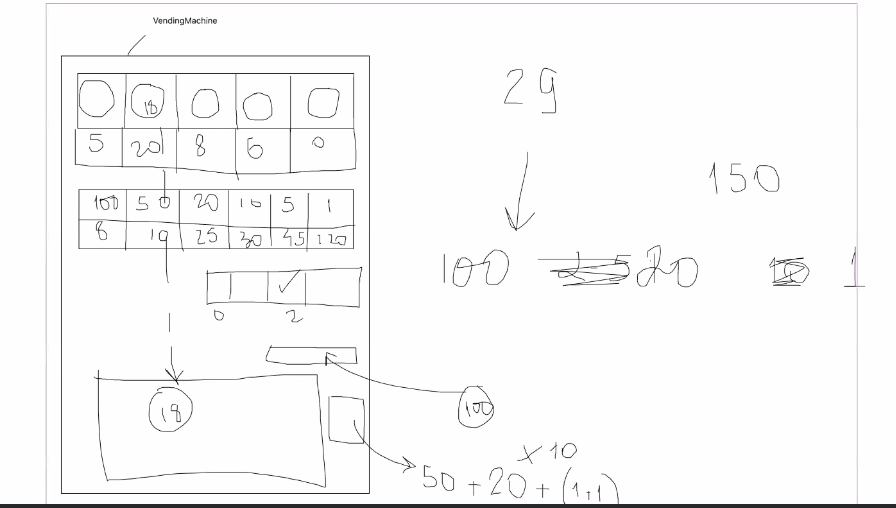 VendingMachine
18
5 20 8 6 0
100 50 20 10 5 1
8 10 25 30 45 120
0 2
18
100
29
150
100 20 1
x10
50 + 20 + (1+1)